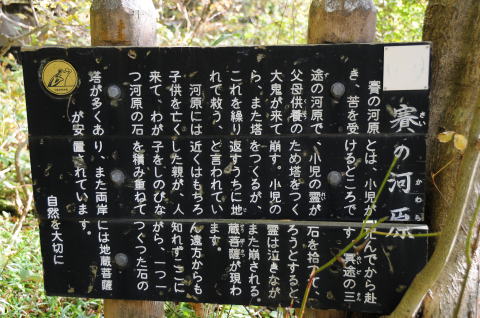 賽の河原
さい
かわら
賽の河原とは、小児が死んでから赴
き、苦を受けるところです。冥途の三
途の河原で、小児の霊が石を拾って、
父母供養のため塔をつくろうとすると
大鬼が来て崩す。小児の霊は泣きなが
ら、また塔をつくるが、また崩される。
これを繰り返すうちに地蔵菩薩が現わ
れて救う、と言われています。
河原には近くはもちろん遠方からも
子供を亡くした親が、人知れずここに
来て、わが子をしのびながら、一つ一
つ河原の石を積み重ねてつくった石の
塔が多くあり、また両岸には地蔵菩薩
が安置されています。
自然を大切に